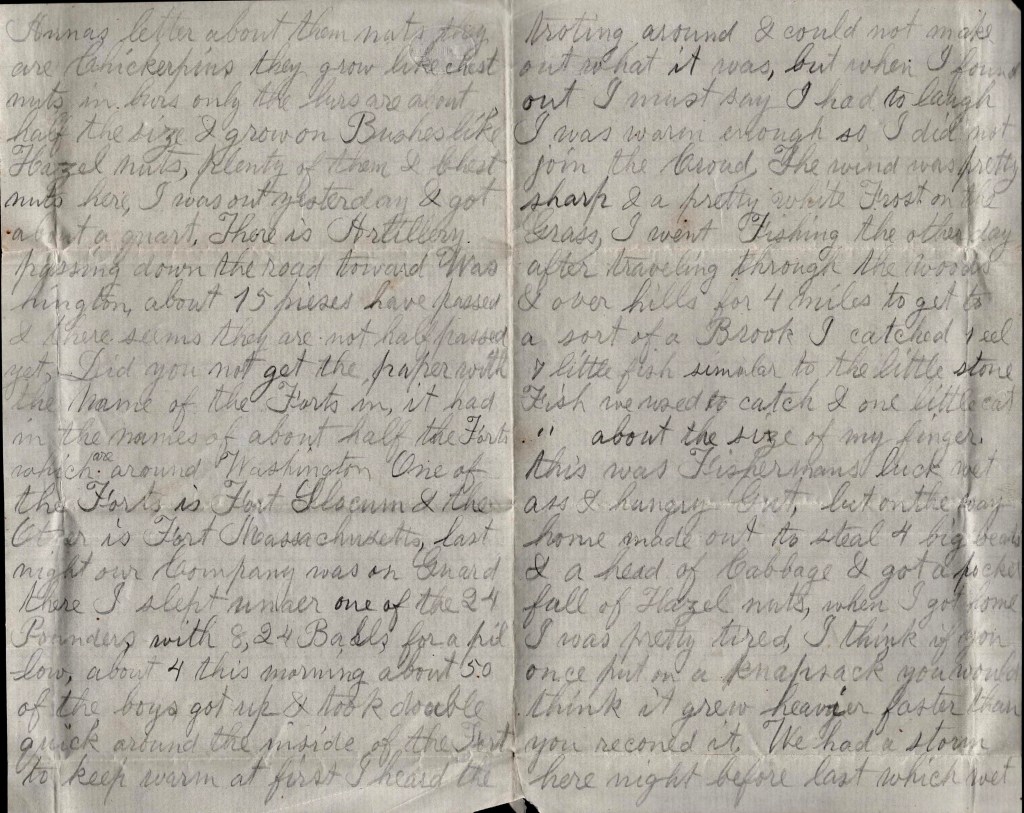 Annas letter about them nuts they
are Chickerpins they grow like chest
nuts in burs only the burs are about
half the size & grow on Bushes like
Hazel nuts, plenty of them & Chest
nuts here, I was out yesterday & got
about a quart. There is Artillery
passing down the road toward Was
hington, about 15 pieses have passed
& there seems they are not half passed
yet, Did you not get the paper with
the Name of the Forts in, it had
in the names of about half the Forts
which are around Washington One of
the Forts is Fort Slocum & the
Other is Fort Massachusetts, last
night our Company was on Guard
there I slept under one of the 24
Pounders, with 8, 24 Balls for a pil
low, about 4 this morning about 50
of the boys got up & took double
quick around the inside of the Fort
to keep warm at first I heard the
troting around & could not make
out what it was, but when I found
out I must say I had to laugh
I was warm enough so I did not
join the Croud, The wind was pretty
sharp & a pretty white Frost on the
Grass, I went Fishing the other day
after traveling through the woods
& over hills for 4 miles to get to
a sort of a Brook I catched 1 eel
& little fish simular to the little stone
Fish we used to catch & one little cat
" about the size of my finger.
this was Fishermans luck wet
ass & hungry Gut, but on the way
home made out to steal 4 big beets
& a head of Cabbage & got a pocket
full of Hazel nuts, when I got home
I was pretty tired, I think if you
once put on a knapsack you would
think it grew heavier faster than
you reconed it, We had a storm
here night before last which wet